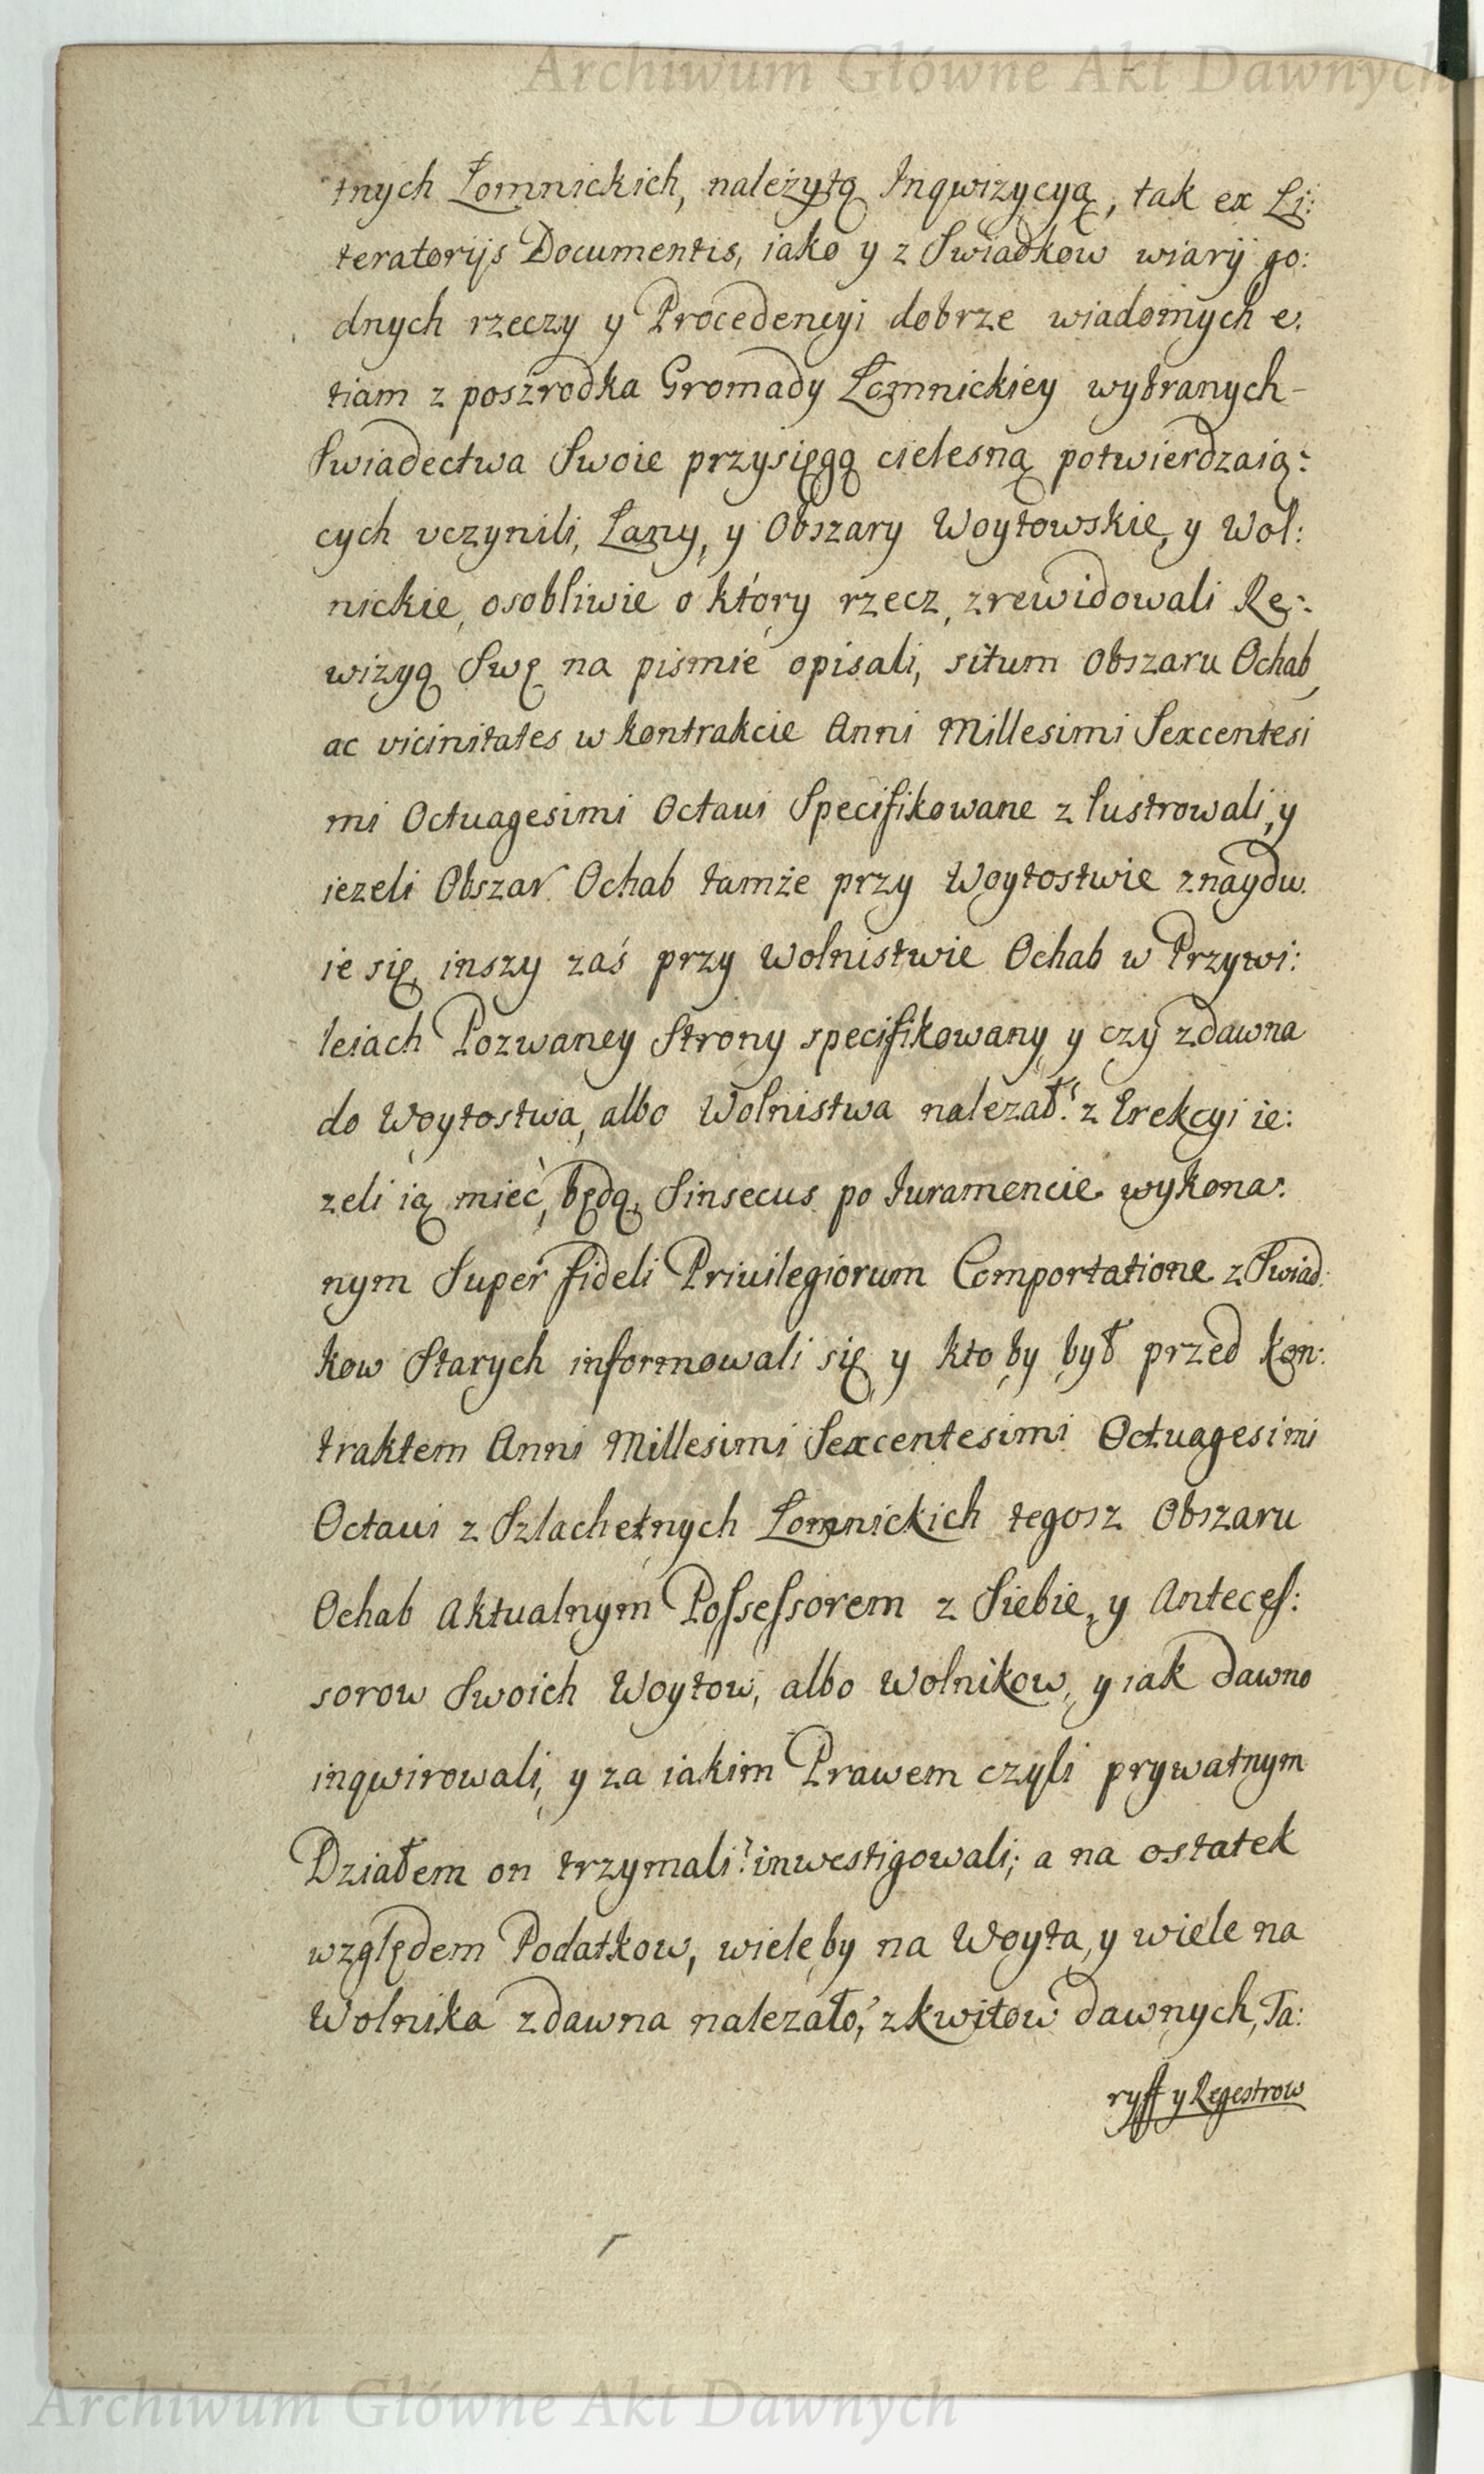 Archiwum Główne Akt Dawnych
tnych Łomnickich, należytą Inqwizycyą, tak ex Li:
teratorijs Documentis, iako y z Swiadkow wiary go:
dnych rzeczy y Procedencyi dobrze wiadomych e:
tiam z poszrodka Gromady Łomnickiey wybranych-
Swiadectwa Swoie przysięgą cielesną potwierdzaią:
cych vczynili, Łany, y Obszary Woytowskie, y Wol:
nickie, osobliwie o ktory rzecz, zrewidowali Re:
wizyą Swę na pismie opisali, situm Obszaru Ochab,
ac vicinitates w kontrakcie Anni Millesimi Sexcentesi
mi Octuagesimi Octaui Specifikowane z lustrowali, y
iezeli Obszar Ochab tamże przy Woytostwie znaydu:
ie się, inszy zaś przy Wolnistwie Ochab w Przywi:
leiach Pozwaney Strony specifikowany, y czy zdawna
do Woytostwa, albo Wolnistwa nalezał? z Erekcyi ie:
zeli ią mieć, będą, Sinsecus po Iuramencie wykona:
nym Super fideli Priuilegiorum Comportatione z Swiad:
kow Starych informowali się y kto by był przed kon:
traktem Anni Millesimi Sexcentesimi Octuagesimi
Octaui z Szlachetnych Łomnickich tegosz Obszaru
Ochab Aktualnym Possessorem z Siebie, y Anteces:
sorow Swoich Woytow, albo Wolnikow, y iak dawno
inqwirowali, y za iakim Prawem czyli prywatnym
Działem on trzymali? inwestigowali; a na ostatek
względem Podatkow, wieleby na Woyta, y wiele na
Wolnika zdawna nalezało, z kwitow dawnych, Ta:
ryff y Regestrow
Archiwum Główne Akt Dawnych